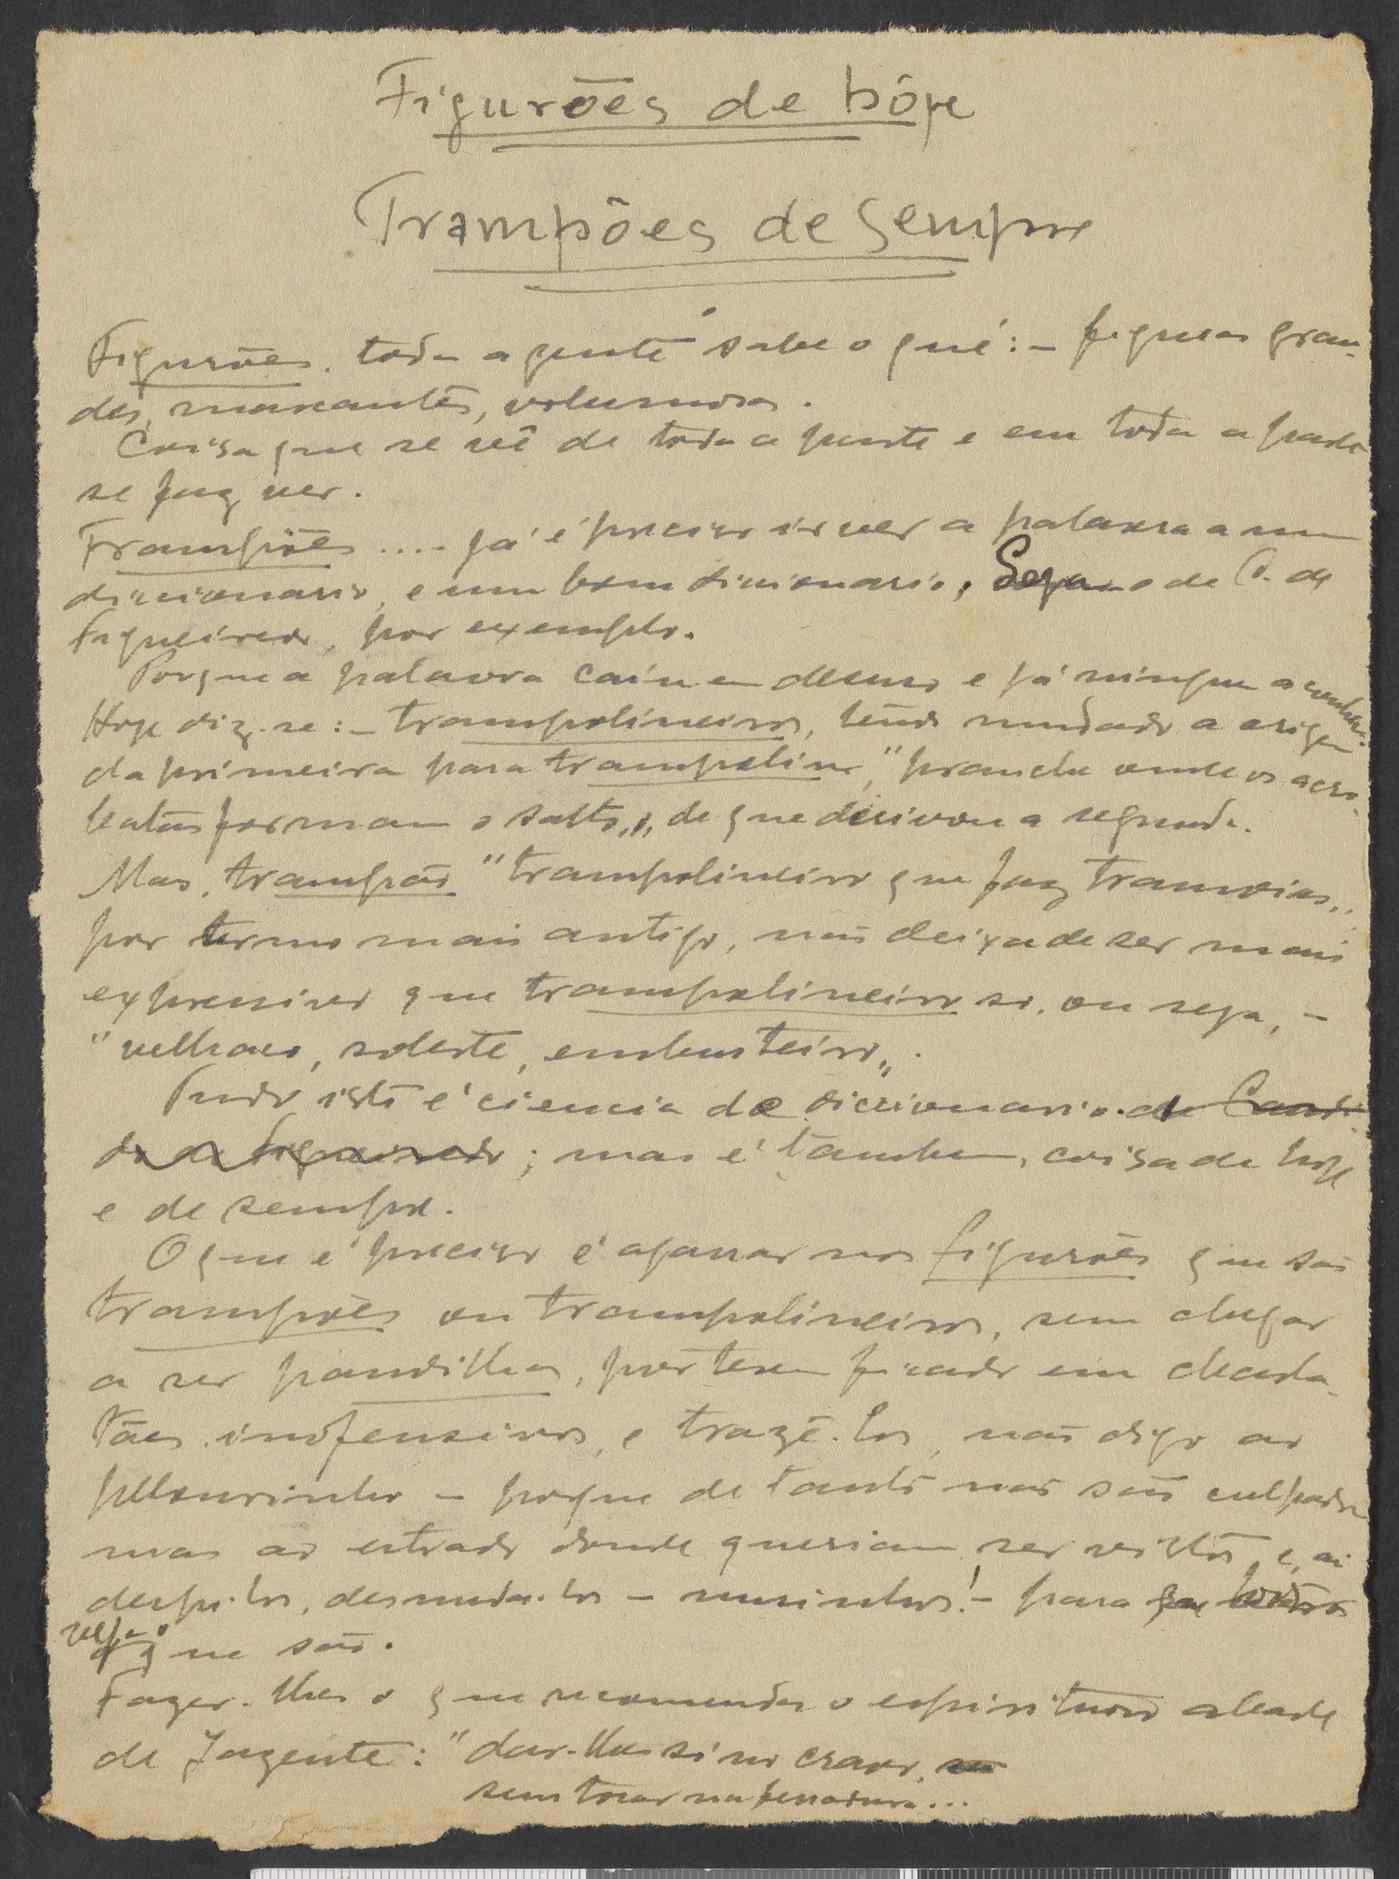 Figurões de hôje
Trampões de sempre
Figurões, toda a gente sabe o qué: - figuras gran-
des, marcantes, volumosas.
Coisa que se vê de toda a parte e em toda a parte
se faz ver.
Trampões .... já é preciso ir ver a palavra a um
diccionario, e um bom diccionario, Seja o de C. de
Figueiredo, por exemplo.
Porque a palavra caíu em desuso e já ninguem a
Hoje diz-se: - trampolineiros, tendo mudado a origem
da primeira para trampolim, "prancha onde os acro-
batas formam o salto,, de que derivou a segunda.
Mas, trampão "trampolineiro que faz tramoias,,
por termo mais antigo, não deixa de ser mais
expressivo que trampolineiro só, ou seja, -
"velhaco, embusteiro,,.
Tudo isto é ciencia de diccionario de Candi-
do de Figueiredo; mas é tambem, coisa de hoje
e de sempre.
O que é preciso é agarrar nos figurões que são
trampões ou trampolineiros, sem chegar
a ser pandilhas, por terem ficado em
inofensivos, e trazê-los, não digo ao
pelourinho - porque de tanto não são culpados
mas ao estrado donde queriam ser vistos, e, aí
despi-los, desnuda-los - nusinhos! - para que todos
veja o que são.
Fazer-lhes o que recomenda o espirituoso abade
de Jazente: "dar-lhes só no cravo,
sem tocar na ferradura...